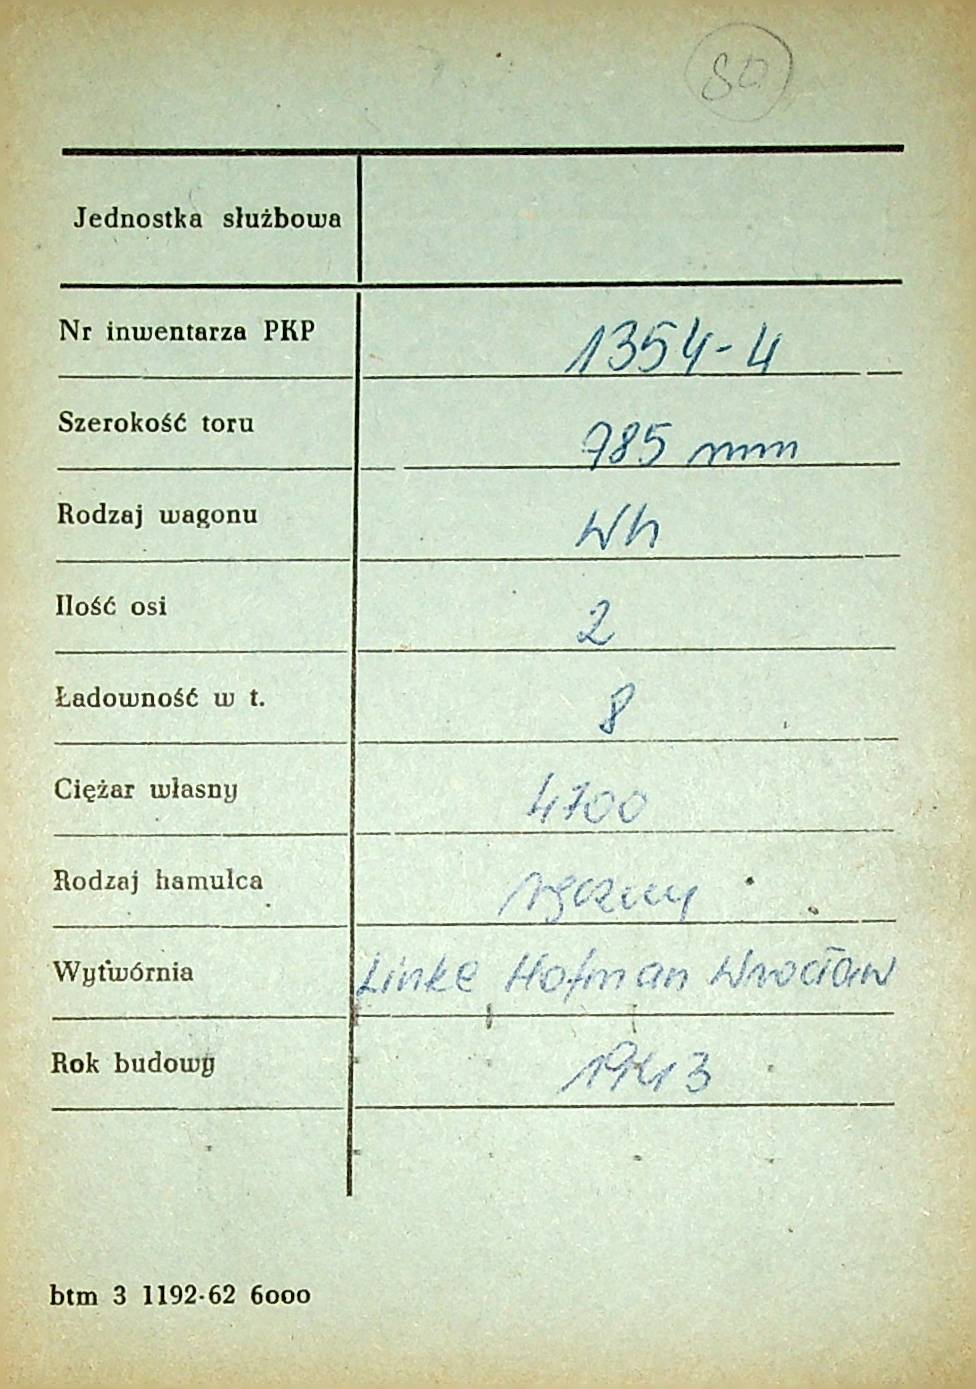 80
Jednostka służbowa
Nr inwentarza PKP 1354-4
Szerokość toru 785 mm
Rodzaj wagonu Wh
Ilość osi 2
Ładowność w t. 8
Ciężar własny 4100
Rodzaj hamulca ręczny
Wytwórnia Linke Hofman Wrocław
Rok budowy
btm 3 1192-62 6000